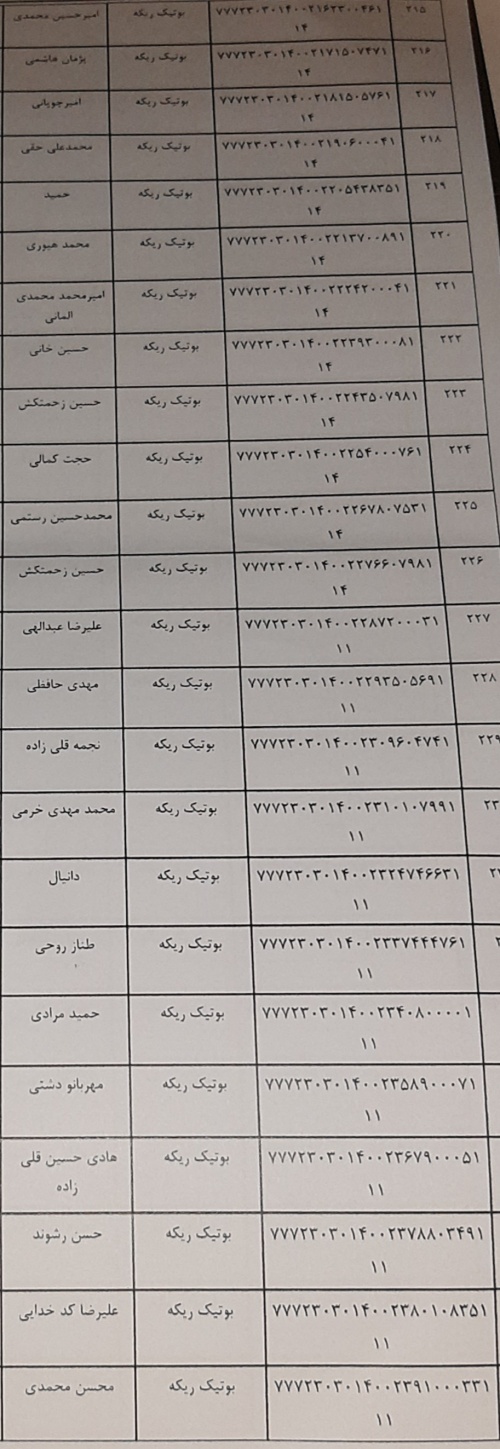 ۲۱۵ ۷۷۷۲۳۰۳۰۱۴۰۰۲۱۶۲۳۰۰۴۶۱ بوتیک ریکه امیرحسین محمدی
۱۴
۲۱۶ ۷۷۷۲۳۰۳۰۱۴۰۰۲۱۷۱۵۰۷۴۷۱ بوتیک ریکه پژمان هاشمی
۱۴
۲۱۷ ۷۷۷۲۳۰۳۰۱۴۰۰۲۱۸۱۵۰۵۷۶۱ بوتیک ریکه امیرجویانی
۱۴
۲۱۸ ۷۷۷۲۳۰۳۰۱۴۰۰۲۱۹۰۶۰۰۰۴۱ بوتیک ریکه محمدعلی حقی
۱۴
۲۱۹ ۷۷۷۲۳۰۳۰۱۴۰۰۲۲۰۵۴۳۸۳۵۱ بوتیک ریکه حمید
۱۴
۲۲۰ ۷۷۷۲۳۰۳۰۱۴۰۰۲۲۱۳۷۰۰۸۹۱ بوتیک ریکه محمد هیوری
۱۴
۲۲۱ ۷۷۷۲۳۰۳۰۱۴۰۰۲۲۲۴۲۰۰۰۴۱ بوتیک ریکه امیرمحمد محمدی
۱۴ المانی
۲۲۲ ۷۷۷۲۳۰۳۰۱۴۰۰۲۲۳۹۳۰۰۰۸۱ بوتیک ریکه حسین خانی
۱۴
۲۲۳ ۷۷۷۲۳۰۳۰۱۴۰۰۲۲۴۳۵۰۷۹۸۱ بوتیک ریکه حسین زحمتکش
۱۴
۲۲۴ ۷۷۷۲۳۰۳۰۱۴۰۰۲۲۵۴۰۰۰۷۶۱ بوتیک ریکه حجت کمالی
۱۴
۲۲۵ ۷۷۷۲۳۰۳۰۱۴۰۰۲۲۶۷۸۰۷۵۳۱ بوتیک ریکه محمدحسین رستمی
۱۴
۲۲۶ ۷۷۷۲۳۰۳۰۱۴۰۰۲۲۷۶۶۰۷۹۸۱ بوتیک ریکه حسین زحمتکش
۱۴
۲۲۷ ۷۷۷۲۳۰۳۰۱۴۰۰۲۲۸۷۲۰۰۰۳۱ بوتیک ریکه علیرضا عبدالهی
۱۱
۲۲۸ ۷۷۷۲۳۰۳۰۱۴۰۰۲۲۹۳۵۰۵۶۹۱ بوتیک ریکه مهدی حافظی
۱۱
۲۲۹ ۷۷۷۲۳۰۳۰۱۴۰۰۲۳۰۹۶۰۴۷۴۱ بوتیک ریکه نجمه قلی زاده
۱۱
۲۳ ۷۷۷۲۳۰۳۰۱۴۰۰۲۳۱۰۱۰۷۹۹۱ بوتیک ریکه محمد مهدی خرمی
۱۱
۷۷۷۲۳۰۳۰۱۴۰۰۲۳۲۴۷۴۶۶۳۱ بوتیک ریکه دانیال
۱۱
۷۷۷۲۳۰۳۰۱۴۰۰۲۳۳۷۴۴۴۷۶۱ بوتیک ریکه طناز روحی
۱۱
۷۷۷۲۳۰۳۰۱۴۰۰۲۳۴۰۸۰۰۰۰۱ بوتیک ریکه حمید مرادی
۱۱
۷۷۷۲۳۰۳۰۱۴۰۰۲۳۵۸۹۰۰۰۷۱ بوتیک ریکه مهربانو دشتی
۱۱
۷۷۷۲۳۰۳۰۱۴۰۰۲۳۶۷۹۰۰۰۵۱ بوتیک ریکه هادی حسین قلی
۱۱ زاده
۷۷۷۲۳۰۳۰۱۴۰۰۲۳۷۸۸۰۳۴۹۱ بوتیک ریکه حسن رشوند
۱۱
۷۷۷۲۳۰۳۰۱۴۰۰۲۳۸۰۱۰۸۳۵۱ بوتیک ریکه علیرضا کد خدایی
۱۱
۷۷۷۲۳۰۳۰۱۴۰۰۲۳۹۱۰۰۰۳۳۱ بوتیک ریکه محسن محمدی
۱۱